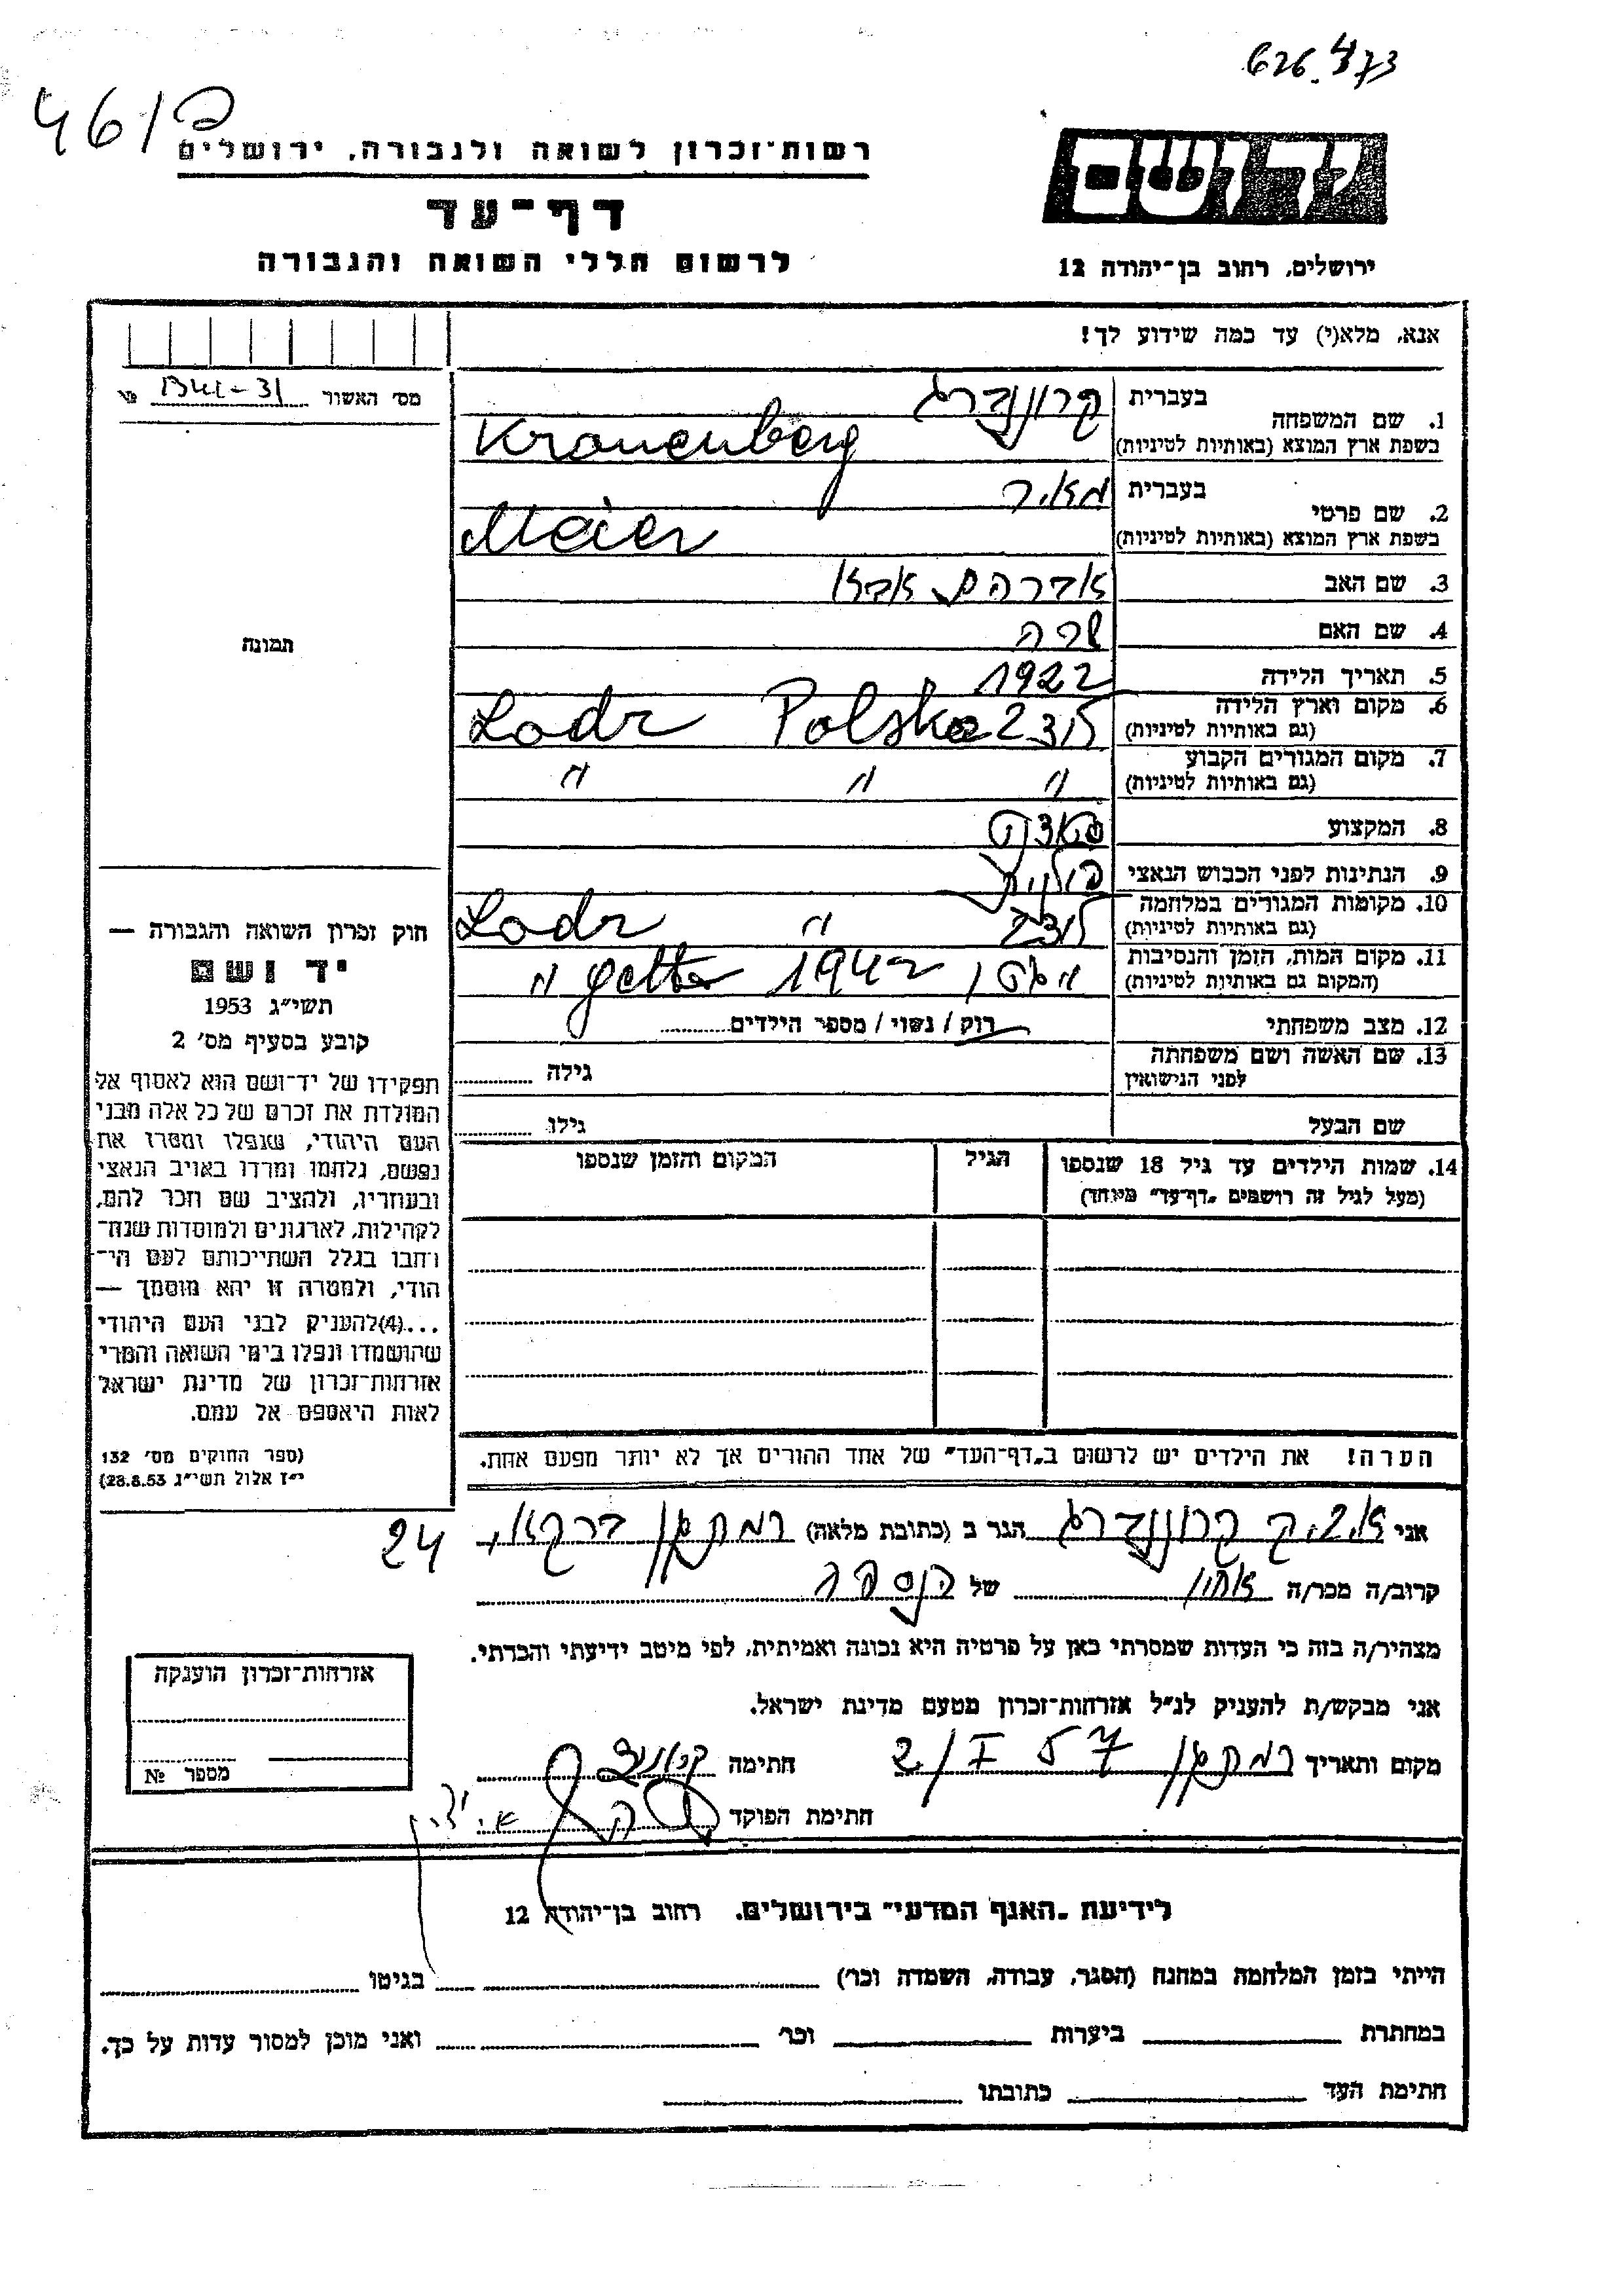 626.473
461 פ
רשות־זכרון לשואה ולגבורה, ירושלים
יד ושם
דף־עד
לרשום חללי השואה והגבורה
ירושלים, רחוב בן־יהודה 12
אנא, מלא(י) עד כמה שידוע לך!
מס׳ האשור № BUL-31
תמונה
1. שם המשפחה
בעברית
קרוננברג
בשפת ארץ המוצא (באותיות לטיניות)
Kronenberg
2. שם פרטי
בעברית
מאיר
בשפת ארץ המוצא (באותיות לטיניות)
Meier
3. שם האב אברהם אבא
4. שם האם שרה
5. תאריך הלידה 1922
6. מקום וארץ הלידה
(גם באותיות לטיניות)
לודז Polska Lodz
7. מקום המגורים הקבוע
(גם באותיות לטיניות)
" " "
8. המקצוע
9. הנתינות לפני הכבוש הנאצי פולנית
10. מקומות המגורים במלחמה
(גם באותיות לטיניות)
לודז " Lodz
11. מקום המות, הזמן והנסיבות
(המקום גם באותיות לטיניות)
1942 getto "
12. מצב משפחתי רוק / נשוי / מספר הילדים
13. שם האשה ושם משפחתה
לפני הנישואין
גילה
שם הבעל גילו
14. שמות הילדים עד גיל 18 שנספו
(מעל לגיל זה רושמים „דף־עד״ מיוחד)
הגיל
המקום והזמן שנספו
הערה! את הילדים יש לרשום ב„דף־העד״ של אחד ההורים אך לא יותר מפעם אחת.
חוק זכרון השואה והגבורה —
יד ושם
תשי״ג 1953
קובע בסעיף מס׳ 2
תפקידו של יד־ושם הוא לאסוף אל
המולדת את זכרם של כל אלה מבני
העם היהודי, שנפלו ומסרו את
נפשם, נלחמו ומרדו באויב הנאצי
ובעוזריו, ולהציב שם וזכר להם,
לקהילות, לארגונים ולמוסדות שנח־
רבו בגלל השתייכותם לעם הי־
הודי, ולמטרה זו יהא מוסמך —
...(4) להעניק לבני העם היהודי
שהושמדו ונפלו בימי השואה והמרי
אזרחות־זכרון של מדינת ישראל
לאות היאספם אל עמם.
(ספר החוקים מס׳ 132
י״ז אלול תשי״ג 28.8.53)
אני איזיק קרוננברג הגר ב (כתובת מלאה) רמת גן 24
קרוב/ה מכר/ה אחיו של הנספה
מצהיר/ה בזה כי העדות שמסרתי כאן על פרטיה היא נכונה ואמיתית, לפי מיטב ידיעתי והכרתי.
אני מבקש/ת להעניק לנ״ל אזרחות־זכרון מטעם מדינת ישראל.
מקום ותאריך רמת גן 2/I 57 חתימה
חתימת הפוקד
אזרחות־זכרון הוענקה
מספר №
לידיעת „האגף המדעי״ בירושלים, רחוב בן־יהודה 12
הייתי בזמן המלחמה במחנה (הסגר, עבודה, השמדה וכר׳) בגיטו
במחתרת ביערות וכר׳ ואני מוכן למסור עדות על כך.
חתימת העד כתובתו